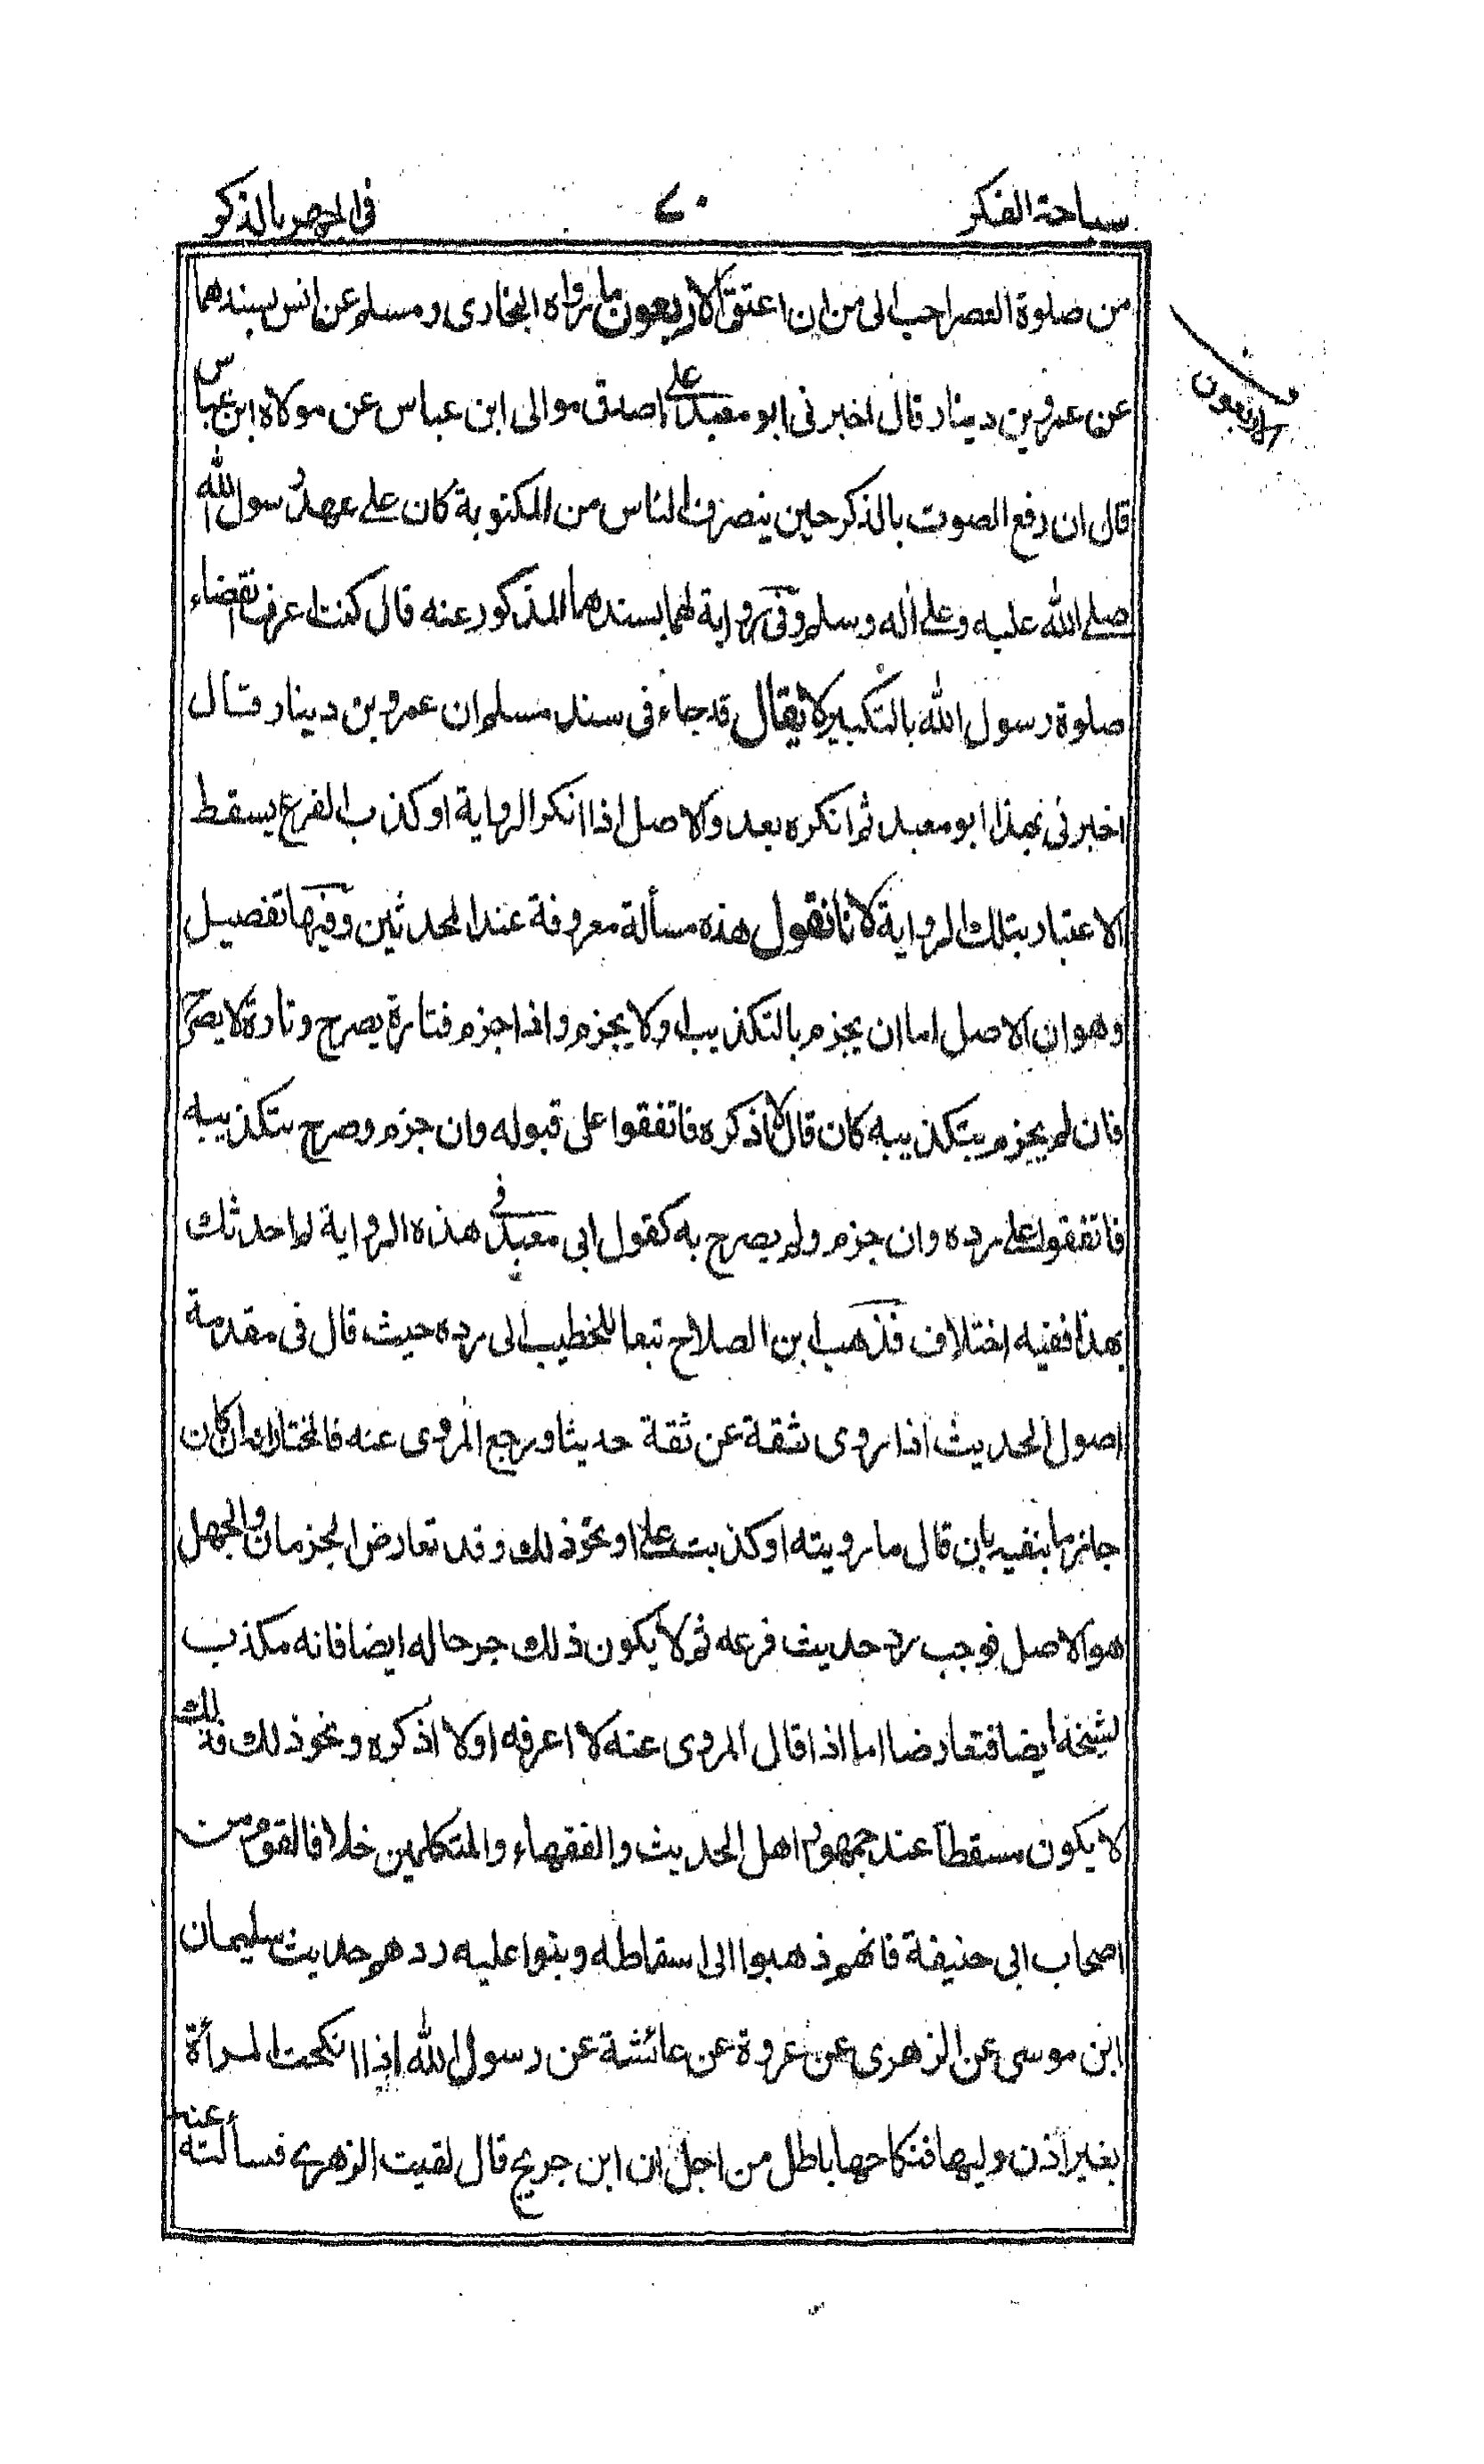 سباحة الفكر ٧٠ فى الجهر بالذكر
من صلوة العصر احب الى من ان اعتق الاربعون ما رواه البخارى ومسلم عن انس بسندهما
الاربعون
عن عمرو بن دينار قال اخبرنى ابو معبد على اصدق موالى ابن عباس عن مولاه ابن عباس
قال ان رفع الصوت بالذكر حين ينصرف الناس من المكتوبة كان على عهد رسول الله
صلى الله عليه وعلى اله وسلم وفى رواية لهما بسندهما المذكور عنه قال كنت اعرف انقضاء
صلوة رسول الله بالتكبير لا يقال قد جاء فى سند مسلم ان عمرو بن دينار قال
اخبرنى بهذا ابو معبد ثم انكره بعد والاصل اذا انكر الرواية او كذب الفرع يسقط
الاعتبار بتلك الرواية لانا نقول هذه مسألة معروفة عند المحدثين وفيها تفصيل
وهو ان الاصل اما ان يجزم بالتكذيب او لا يجزم واذا جزم فتارة يصرح وتارة لا يصرح
فان لم يجزم بتكذيبه كان قال لا اذكره فاتفقوا على قبوله وان جزم وصرح بتكذيبه
فاتفقوا على رده وان جزم ولم يصرح به كقول ابى معبد فى هذه الرواية لم احدثك
بهذا ففيه اختلاف فذهب ابن الصلاح تبعا للخطيب الى رده حيث قال فى مقدمة
اصول الحديث اذا روى ثقة عن ثقة حديثا ورجع المروى عنه فالمختار انه ان كان
جازما بنفيه بان قال ما رويته او كذبت على او نحو ذلك وقد تعارض الجزمان والجهل
هو الاصل فوجب رد حديث فرعه ثم لا يكون ذلك جرحا له ايضا فانه مكذب
لشيخه ايضا فتعارضا اما اذا قال المروى عنه لا اعرفه اولا اذكره ونحو ذلك فذلك
لا يكون مسقطا عند جمهور اهل الحديث والفقهاء والمتكلمين خلافا لقوم من
اصحاب ابى حنيفة فانهم ذهبوا الى اسقاطه وبنوا عليه ردهم حديث سليمان
ابن موسى عن الزهرى عن عروة عن عائشة عن رسول الله اذا انكحت المرأة
بغير اذن وليها فنكاحها باطل من اجل ان ابن جريج قال لقيت الزهرى فسألته عنه